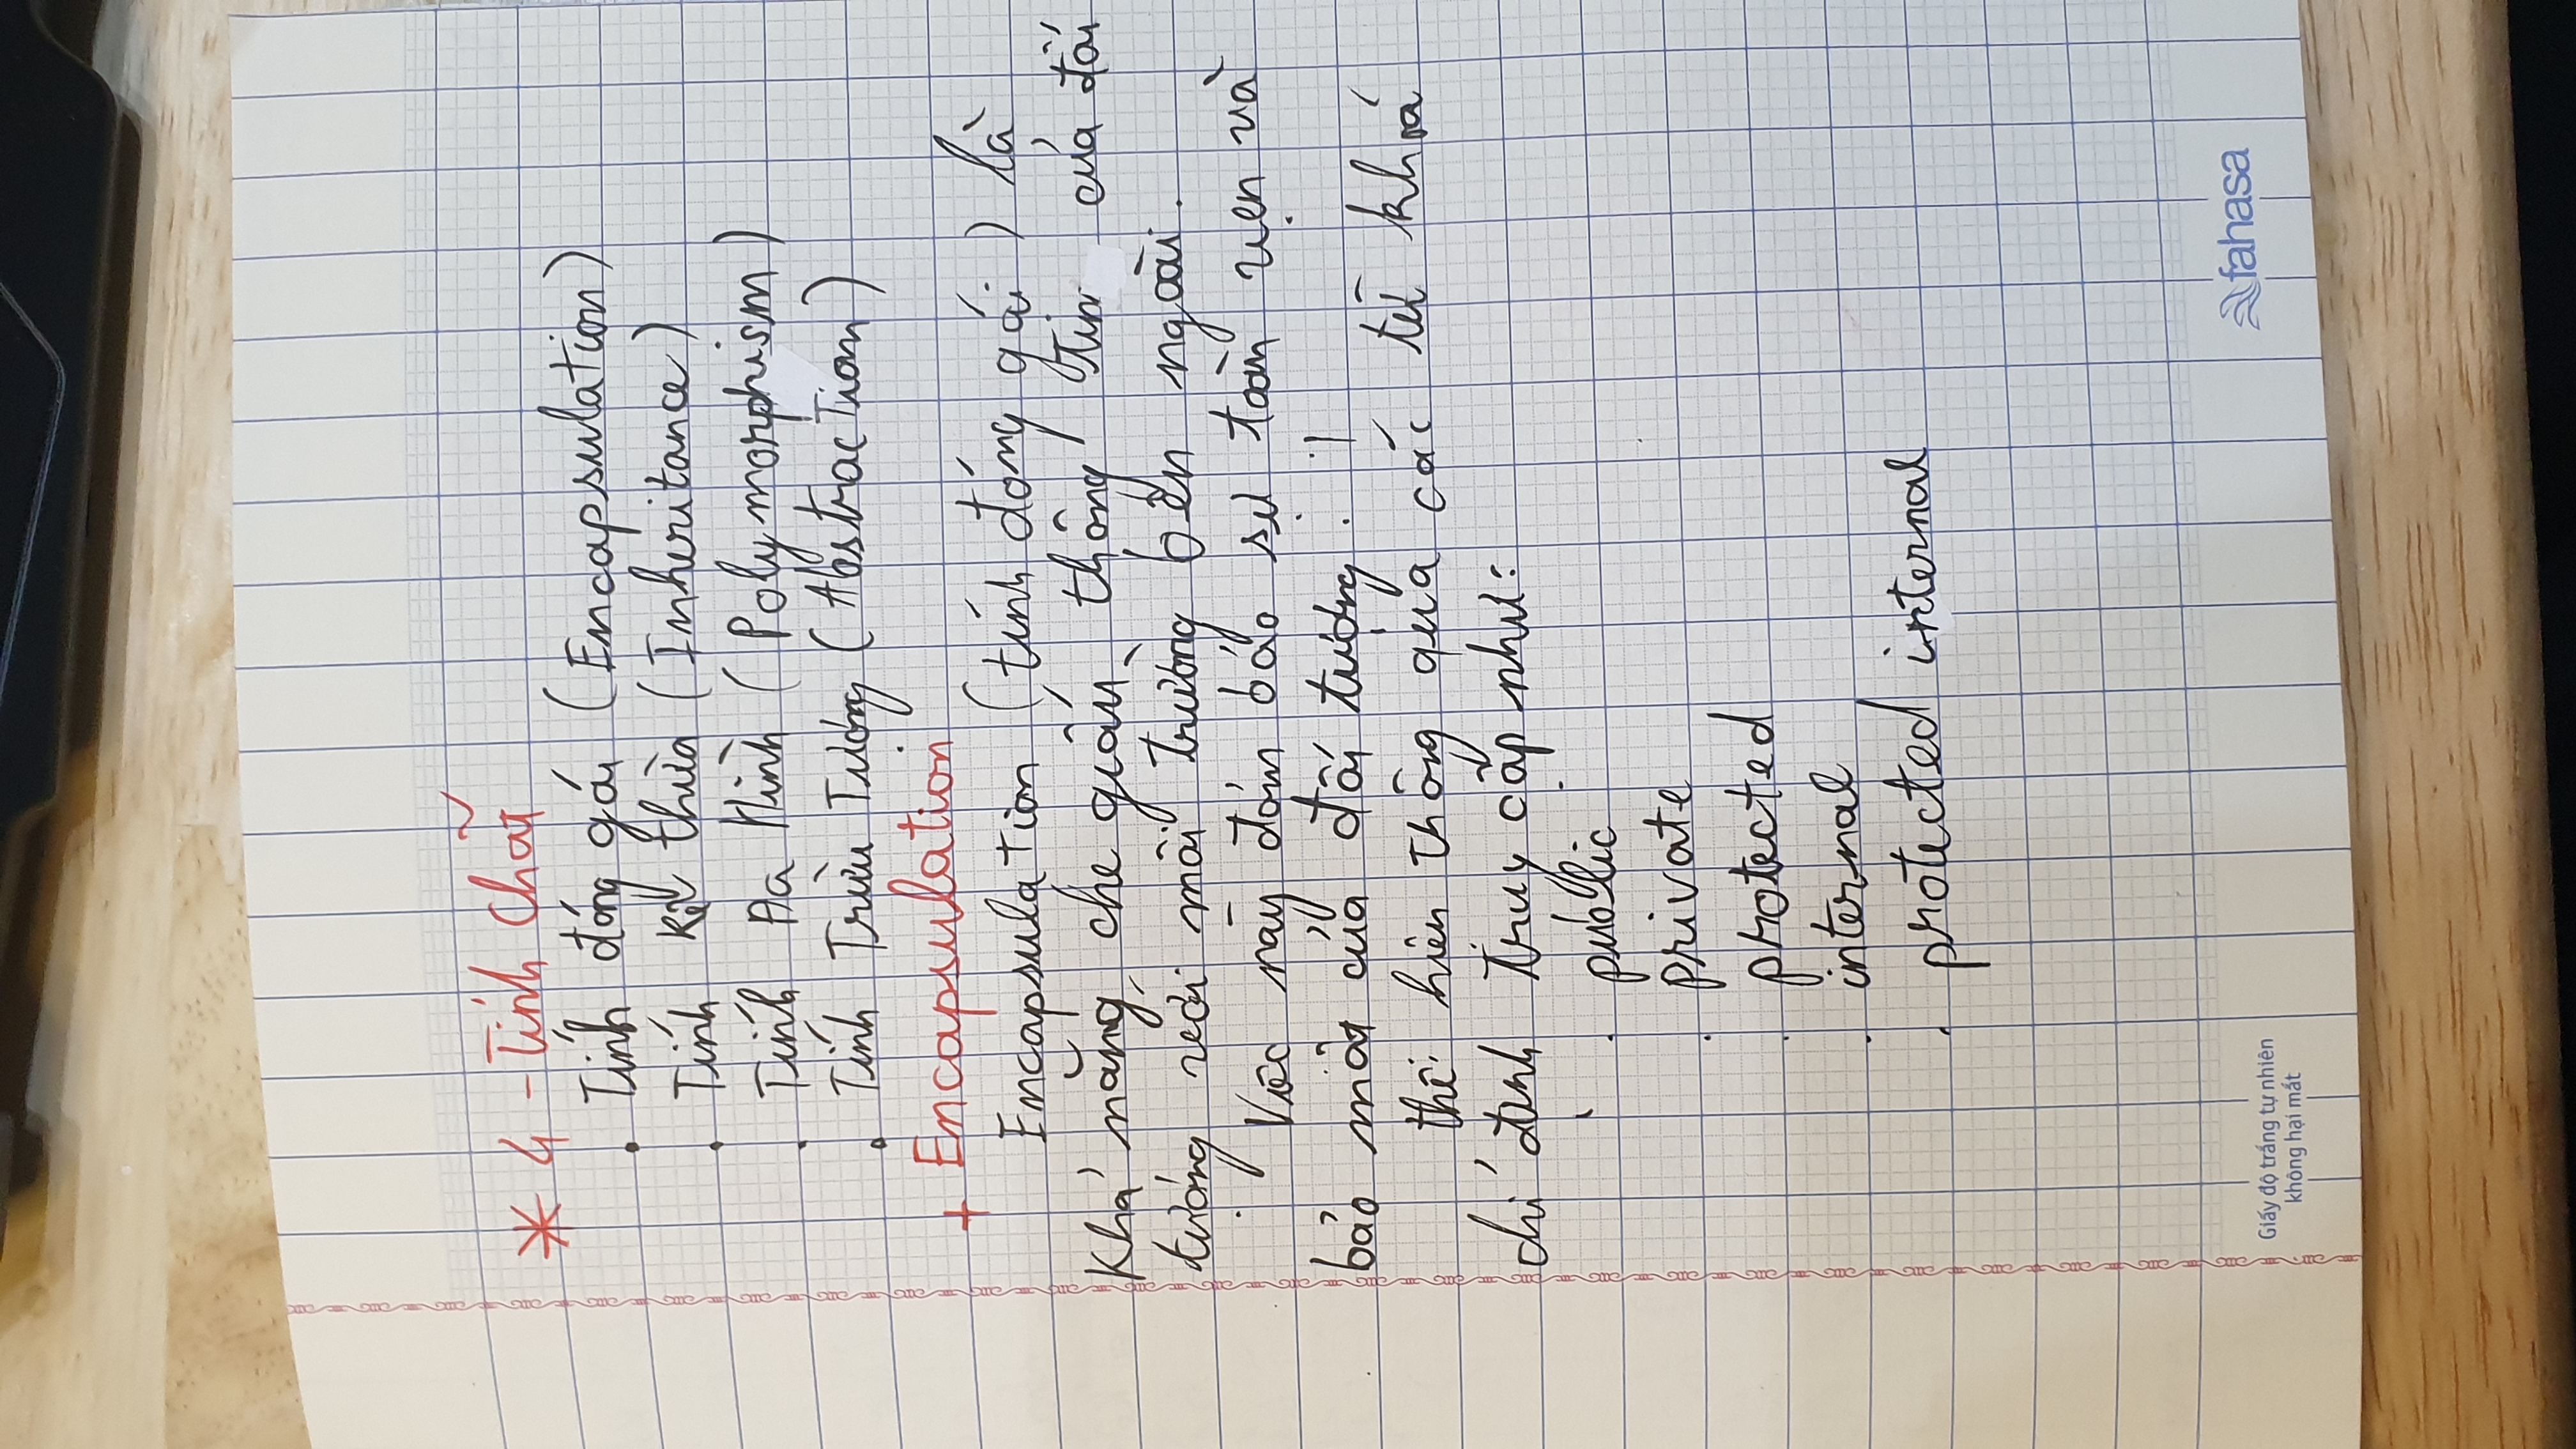 * 4 - Tính chất
. Tính đóng gói (Encapsulation)
. Tính kế thừa (Inheritance)
. Tính Đa Hình (Polymorphism)
. Tính Trừu Tượng (Abstraction)
+ Encapsulation
Encapsulation (tính đóng gói) là
khả năng che giấu thông tin của đối
tượng với môi trường bên ngoài.
Việc này đảm bảo sự toàn vẹn và
bảo mật của đối tượng.
thể hiện thông qua các từ khoá
chỉ định truy cập như:
. public
. private
. protected
. internal
. protected internal
Giấy độ trắng tự nhiên
không hại mắt
fahasa